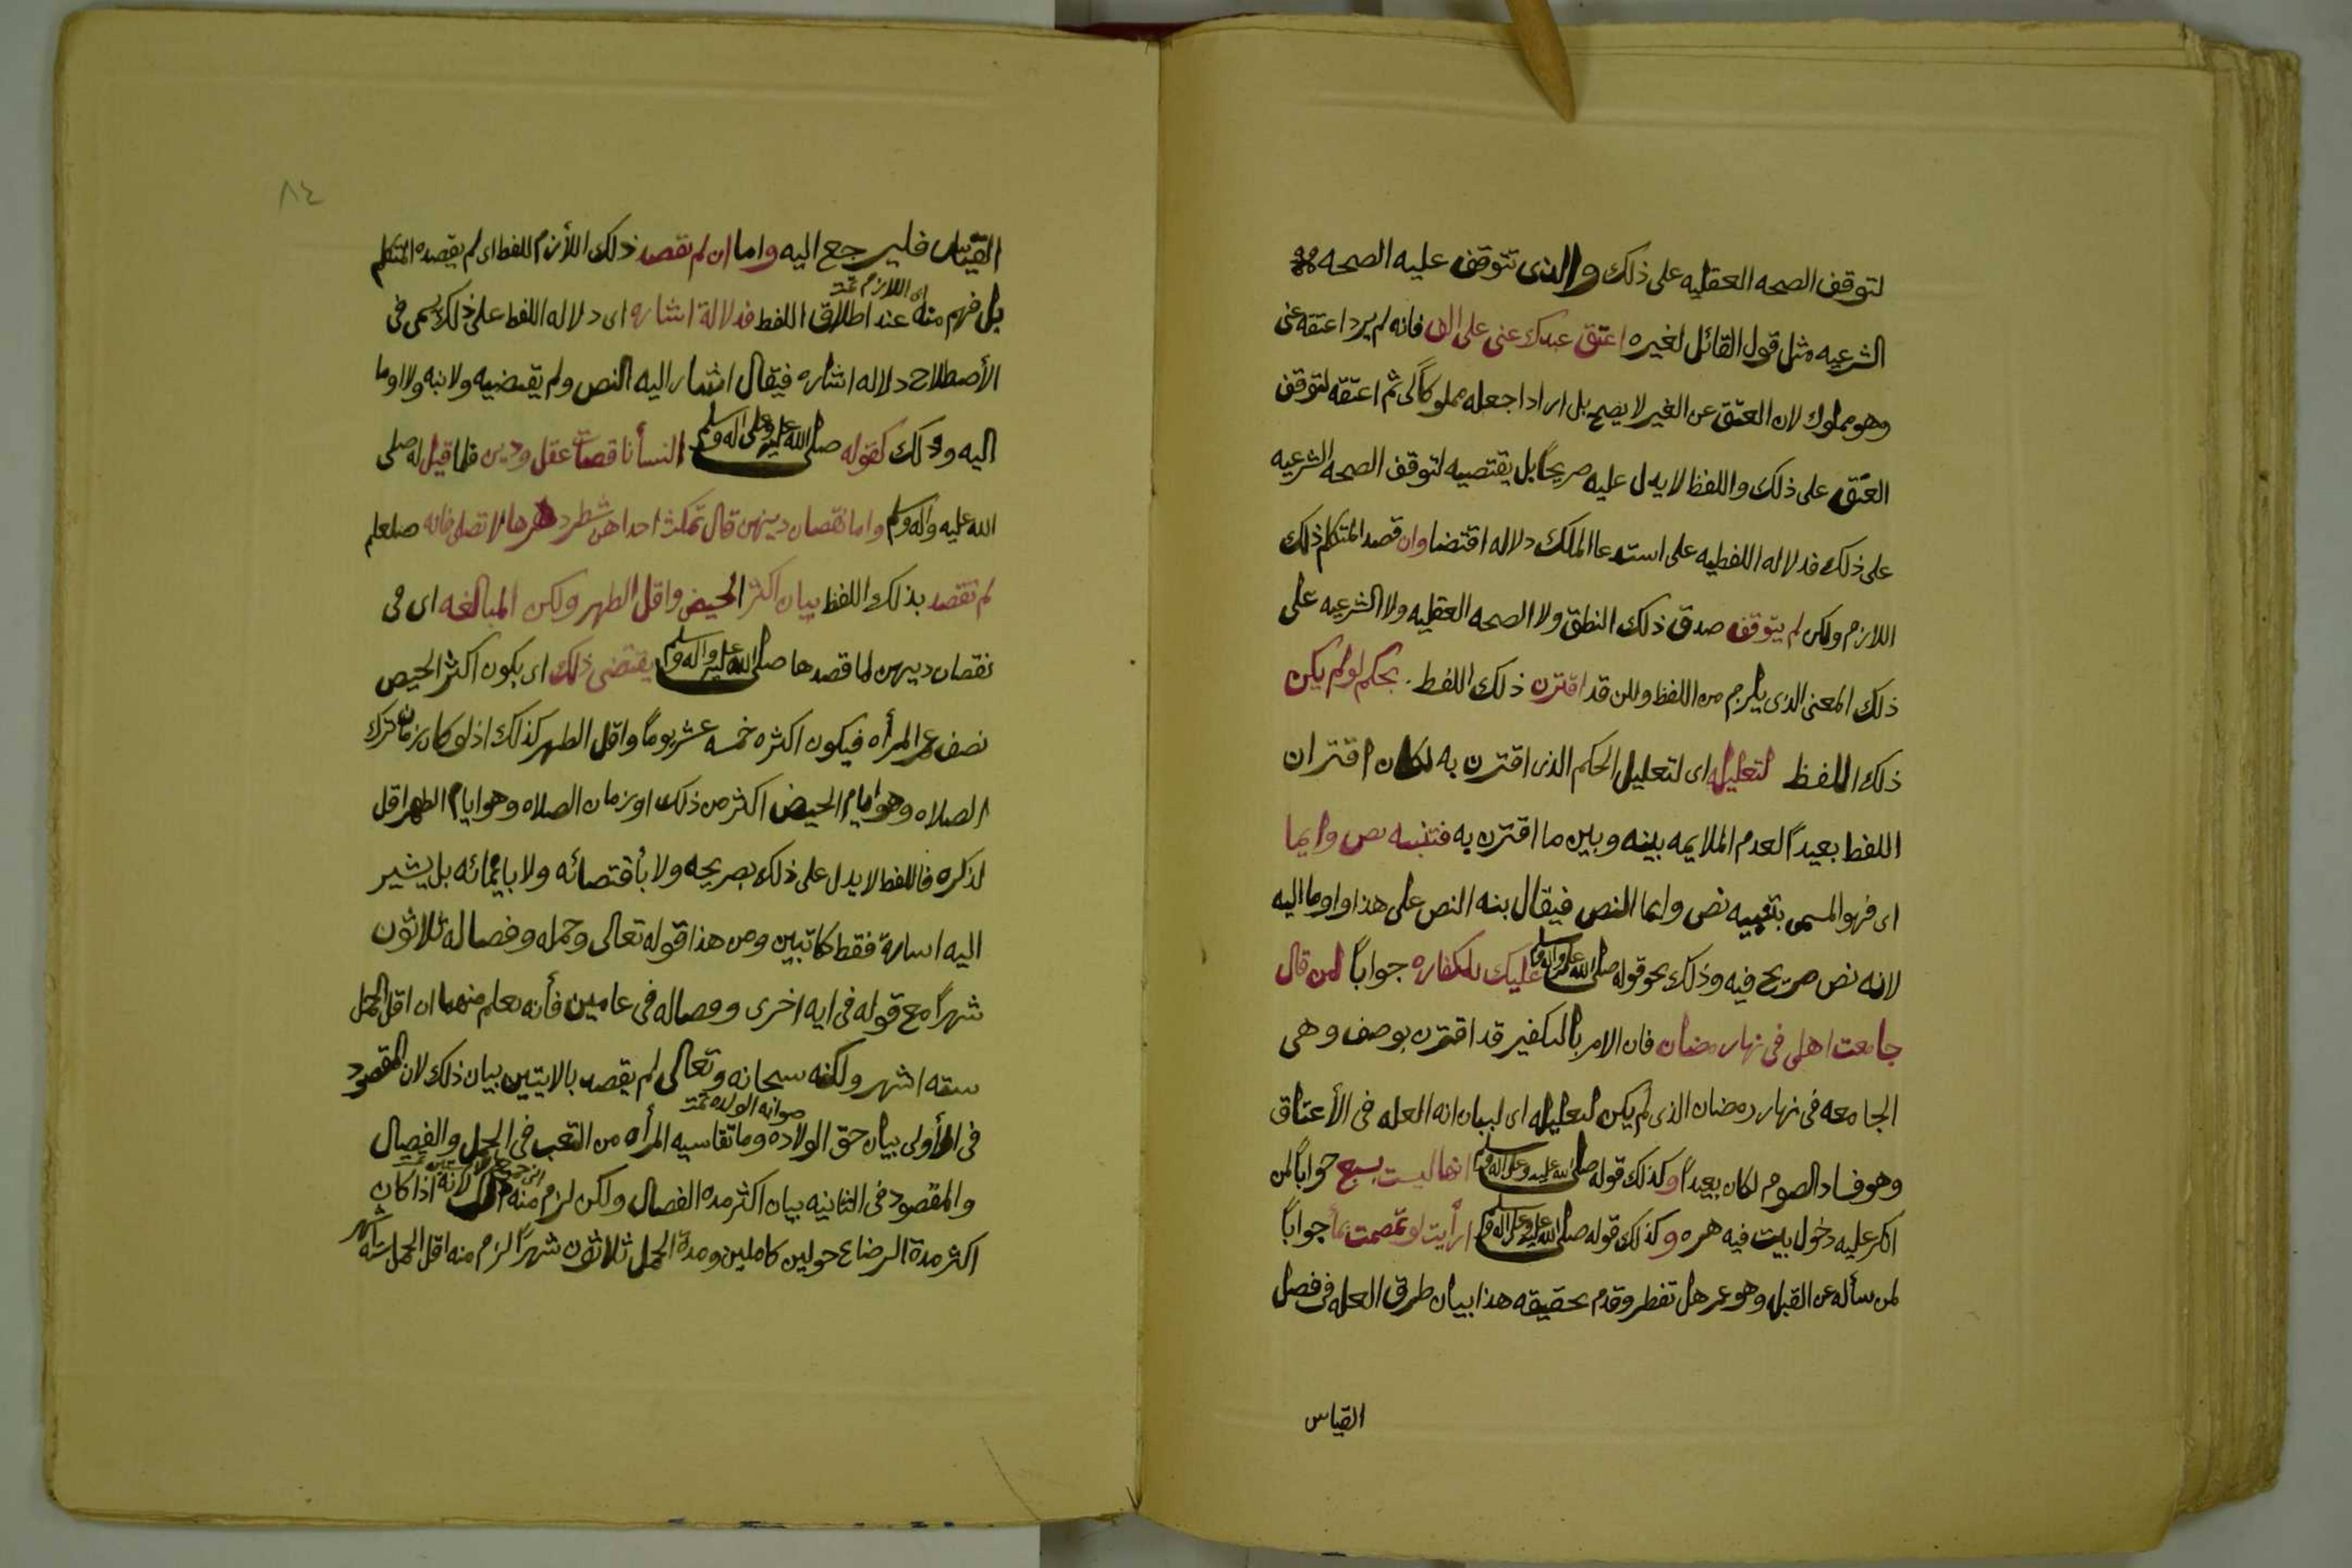 لتوقف الصحه العقليه على ذلك والذى تتوقف عليه الصحه
الشرعيه مثل قول القائل لغيره اعتق عبدك عنى على الف فانه لم يرد اعتقه عنى
وهو مملوك لان العتق عن الغير لا يصح بل اراد اجعله مملوكاً لى ثم اعتقه لتوقف
العتق على ذلك واللفظ لا يدل عليه صريحاً بل يقتضيه لتوقف الصحه الشرعيه
على ذلك فدلاله اللفظيه على استدعا الملك دلاله اقتضا وان قصد المتكلم ذلك
اللازم ولكن لم يتوقف صدق ذلك النطق ولا الصحه العقليه ولا الشرعيه على
ذلك المعنى الذى يلزم من اللفظ ولكن قد اقترن ذلك اللفظ بحكم لو لم يكن
ذلك اللفظ لتعليله اى لتعليل الحكم الذى اقترن به لكان اقتران
اللفط بعيداً لعدم الملايمه بينه وبين ما اقترن به فتنبيه نص وايما
اى فهو المسمى بتنبيه نص وايما النص فيقال نبه النص على هذا او اوما اليه
لانه نص صريح فيه وذلك نحو قوله صلى الله عليه وعلى اله وسلم عليك الكفاره جواباً لمن قال
جامعت اهلى فى نهار رمضان فان الامر بالتكفير قد اقترن بوصف وهى
الجامعه فى نهار رمضان الذى لم يكن لتعليله اى لبيان انه العله فى الأعتاق
وهو فساد الصوم لكان بعيداً وكذلك قوله صلى الله عليه وعلى اله وسلم انها ليست بسبع جواباً لمن
انكر عليه دخول بيت فيه هره وكذلك قوله صلى الله عليه وعلى اله وسلم ارأيت لو تمضمضت بمأ جواباً
لمن سأله عن القبله وهو عمر هل تفطر وقدم تحقيقه هذا بيان طرق العله فى فصل
القياس
٨٤
القياس فليرجع اليه واما ان لم يقصد ذلك اللأزم اللفط اى لم يقصده المتكلم
اى اللازم تمت
بل فهم منه عند اطلاق اللفط فدلالة اشاره اى دلاله اللفط على ذلك يسمى فى
الأصطلاح دلاله اشاره فيقال اشار اليه النص ولم يقتضيه ولا نبه ولا اوما
اليه وذلك كقوله صلى الله عليه وعلى اله وسلم النسأ ناقصات عقل ودين فلما قيل له صلى
الله عليه واله وسلم واما نقصان دينهن قال تمكث احداهن شطر دهرها لا تصلى فانه صلعلم
لم يقصد بذلك اللفظ بيان اكثر الحيض واقل الطهر ولكن المبالغه اى فى
نقصان دينهن لما قصدها صلى الله عليه واله وسلم يقتضى ذلك اى يكون اكثر الحيض
نصف عمر المرأه فيكون اكثره خمسه عشر يوماً واقل الطهر كذلك اذ لو كان زمان ترك
الصلاه وهو ايام الحيض اكثر من ذلك او زمان الصلاه وهو ايام الطهر اقل
لذكره فاللفط لا يدل على ذلك بصريحه ولا بأقتضائه ولا بايمائه بل يشير
اليه اسارة فقط كما تبين ومن هذا قوله تعالى وحمله وفصاله ثلاثون
شهراً مع قوله فى ايه اخرى وفصاله فى عامين فأنه يعلم منهما ان اقل الحمل
سته اشهر ولكنه سبحانه وتعالى لم يقصد بالايتين بيان ذلك لان المقصود
صوابه الولده تمت
فى الأولى بيان حق الولاده وما تقاسيه المرأه من التعب فى الحمل والفصال
والمقصود فى الثانيه بيان اكثر مده الفصال ولكن لزم منه ذلك لانه اذا كان
اكثر مدة الرضاع حولين كاملين ومدة الحمل ثلاثون شهراً لزم منه اقل الحمل سته اشهر